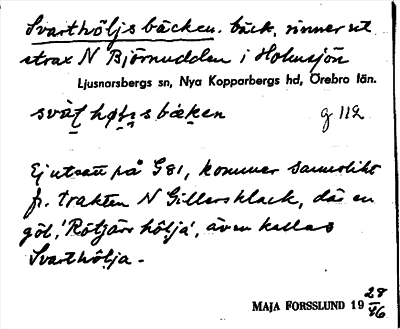 Svarthöljsbäcken. bäck, rinner ut
strax N Björnudden i Holmsjön
Ljusnarsbergs sn, Nya Kopparbergs hd, Örebro län.
g 112
Ej utsatt på G81, kommer sannolikt
fr. trakten N Gillersklack, där en
göl, 'Rötjärn hölja', även kallas
Svarthölja -
MAJA FORSSLUND 19 28/46